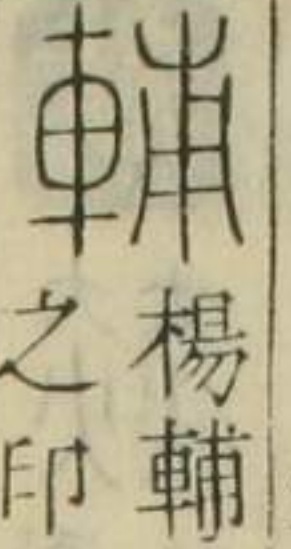 輔
楊輔
之印